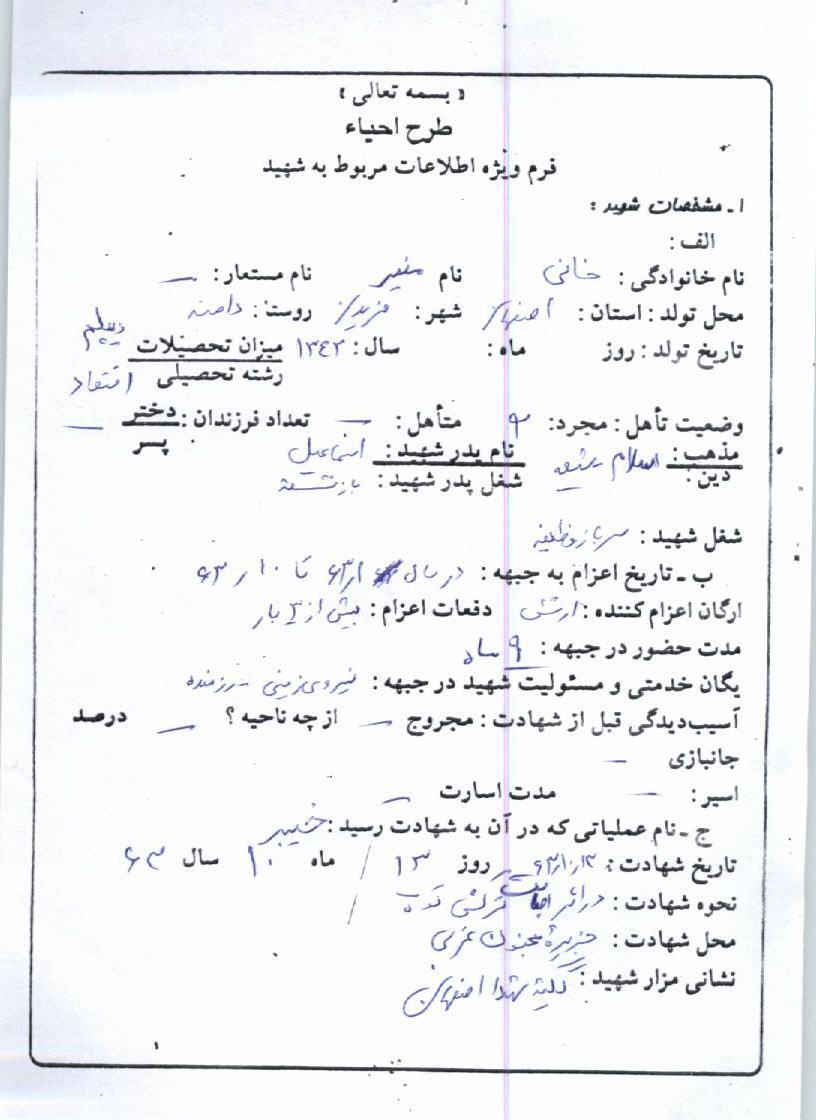 « بسمه تعالی »
طرح احیاء
فرم ویژه اطلاعات مربوط به شهید
۱ ـ مشخصات شهید :
الف :
نام خانوادگی : خانی نام نام مستعار : —
محل تولد : استان : اصفهان شهر : فریدن روستا : دامنه
تاریخ تولد : روز ماه : سال : ۱۳۴۲ میزان تحصیلات دیپلم
رشته تحصیلی اقتصاد
وضعیت تأهل : مجرد : متأهل : — تعداد فرزندان : دختر —
پسر
مذهب : اسلام شیعه نام پدر شهید : اسماعیل
دین : شغل پدر شهید : بازنشسته
شغل شهید : سرباز وظیفه
ب ـ تاریخ اعزام به جبهه : در سال ۶۳ تا ۱۰ ر ۶۳
ارگان اعزام کننده : ارتش دفعات اعزام : بیش از بار
مدت حضور در جبهه : ۹ ماه
یگان خدمتی و مسئولیت شهید در جبهه : نیروی زمینی رزمنده
آسیب‌دیدگی قبل از شهادت : مجروح — از چه ناحیه ؟ — درصد
جانبازی —
اسیر : — مدت اسارت —
ج ـ نام عملیاتی که در آن به شهادت رسید : خیبر
تاریخ شهادت : ۶۳/۱۰/۱۳ روز ۱۳ ماه ۱۰ سال ۶۳
نحوه شهادت : در اثر اصابت ترکش
محل شهادت : جزیره مجنون غربی
نشانی مزار شهید : گلستان شهدا اصفهان
۱